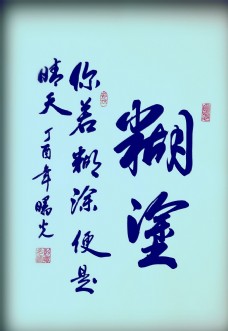 糊塗
你若糊涂便是
晴天
丁酉年曙光